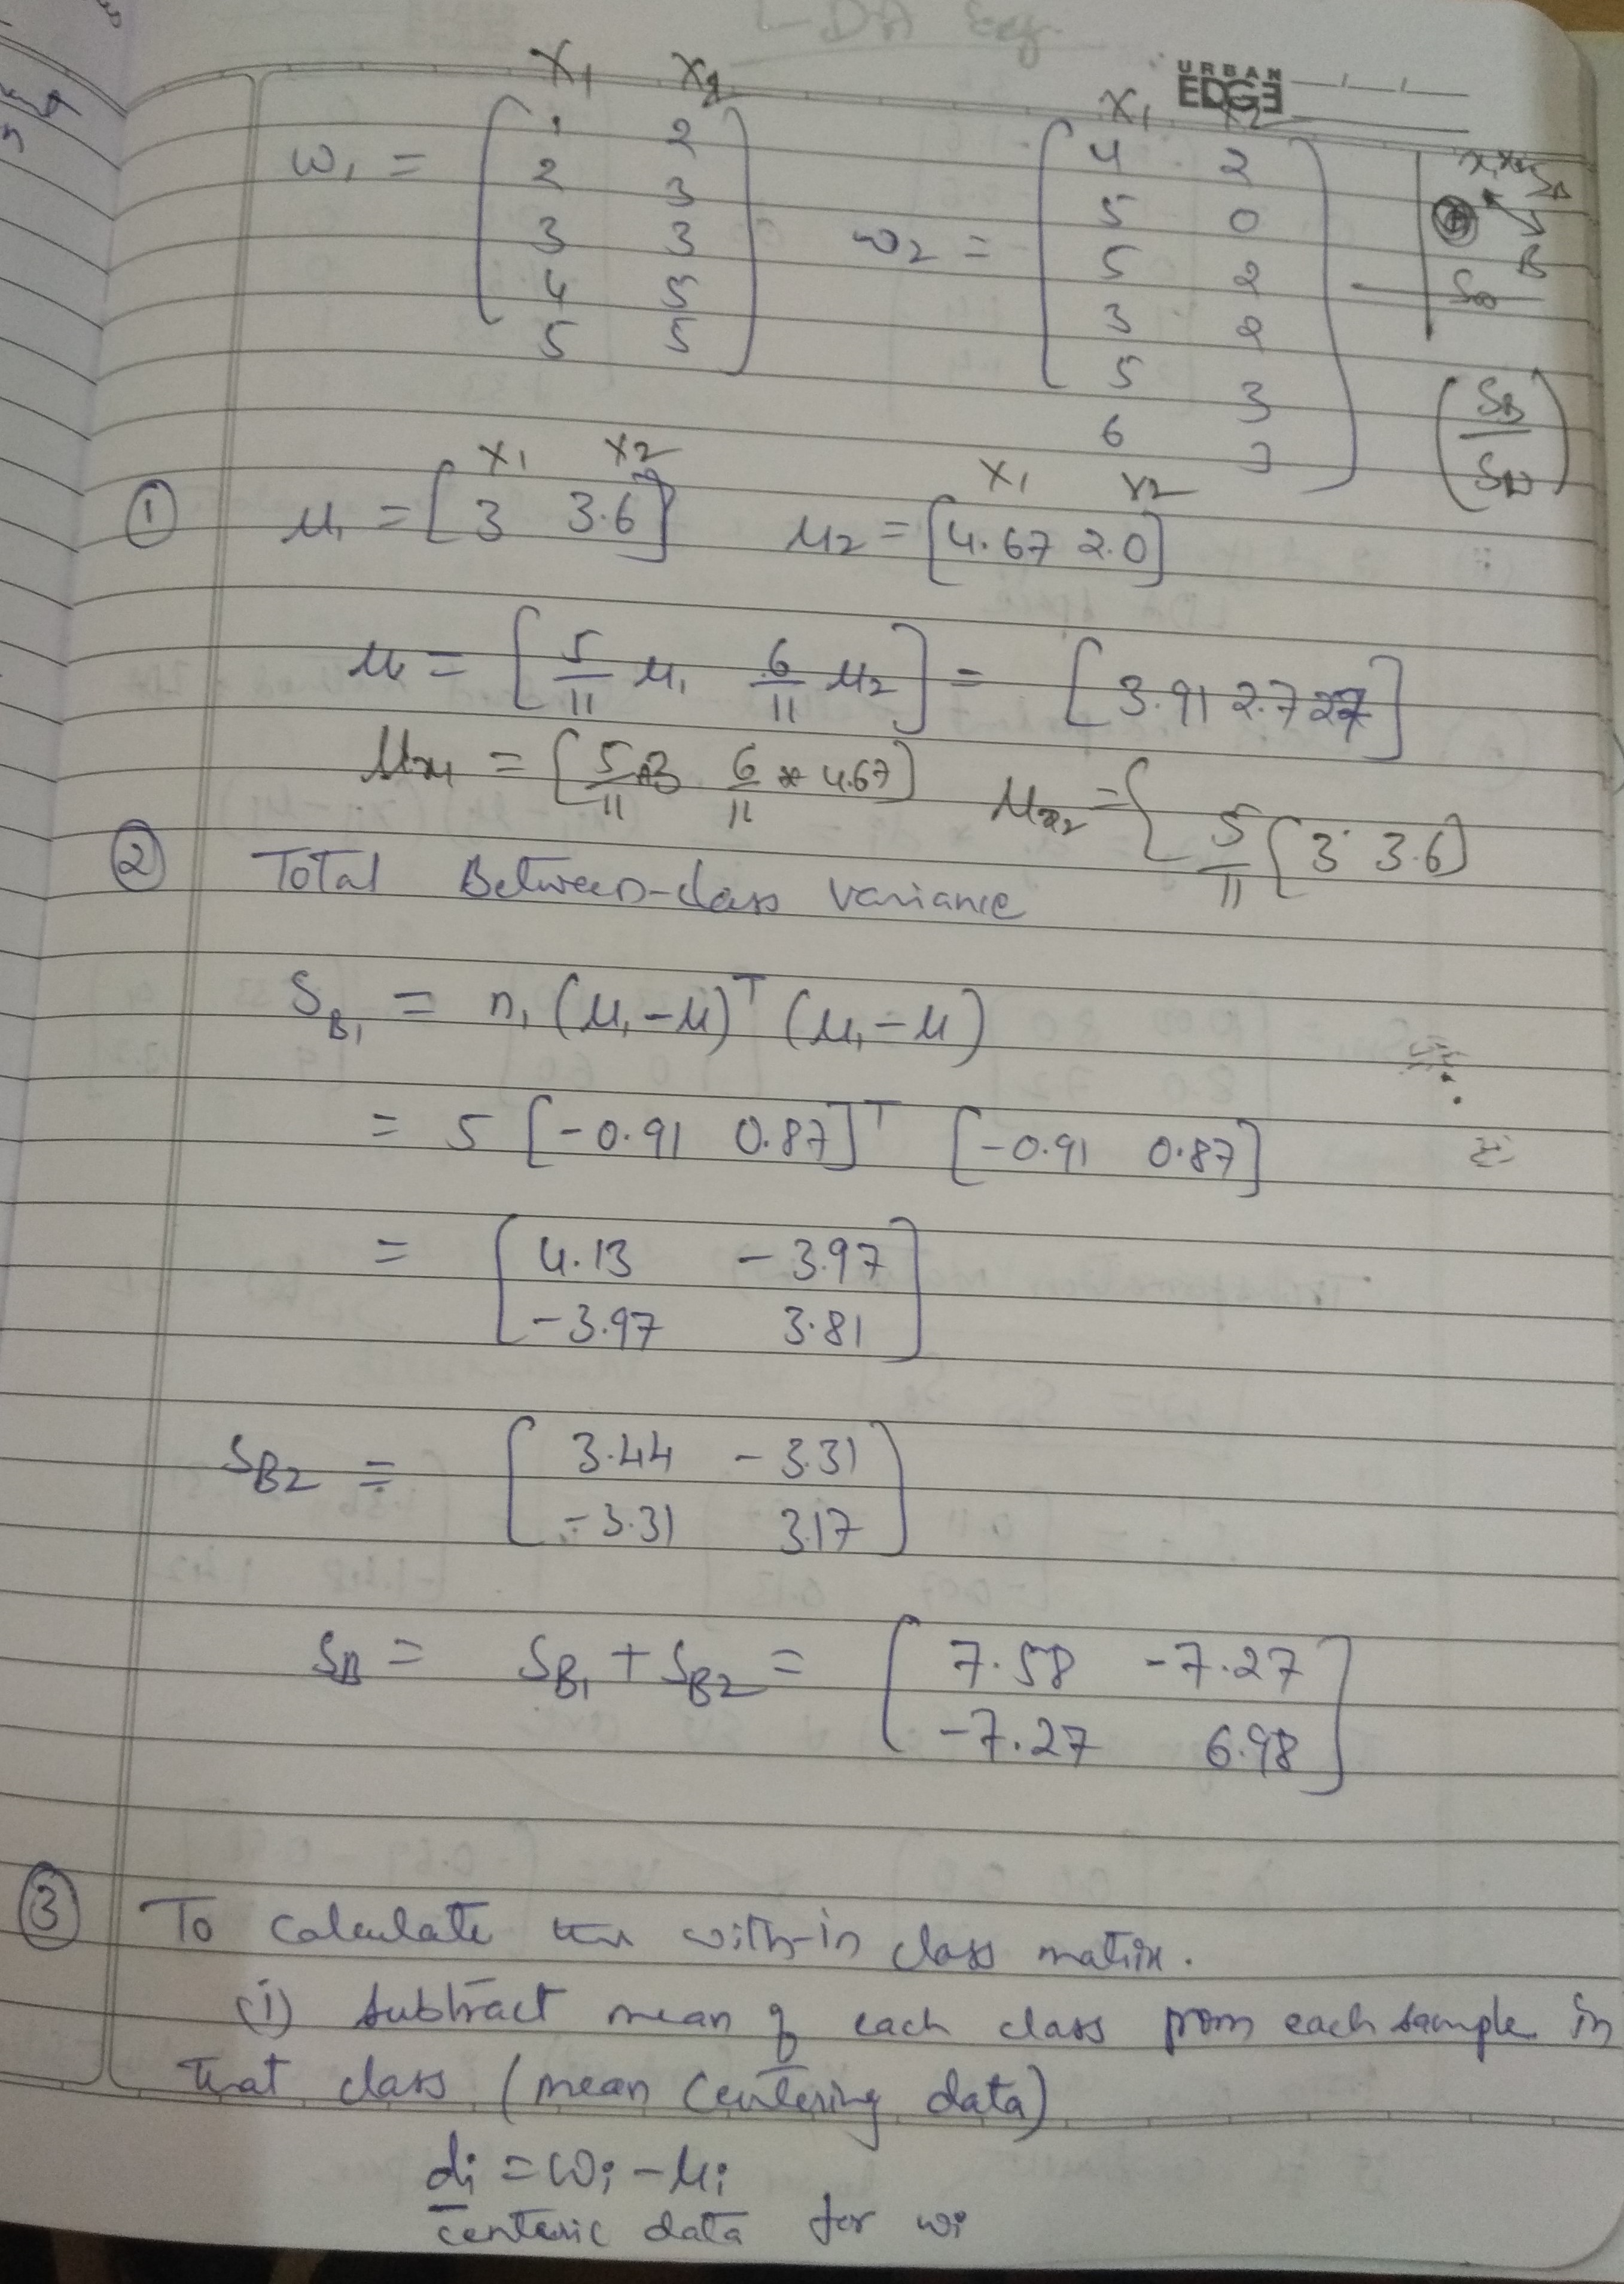 URBAN
EDGE
X1 X2
X1 X2
ω1 = [ 1 2
2 3
3 3
4 5
5 5 ]
ω2 = [ 4 2
5 0
5 2
3 2
5 3
6 3 ]
B
(SB / SW)
① X1 X2 X1 X2
μ1 = [3 3.6] μ2 = [4.67 2.0]
μ = [5/11 μ1 6/11 μ2] = [3.91 2.727]
μx1 = [5/11 *3 6/11 * 4.67] μx2 = { 5/11 [3 3.6]
② Total Between-class variance
SB1 = n1 (μ1-μ)^T (μ1-μ)
= 5 [-0.91 0.87]^T [-0.91 0.87]
= [ 4.13 -3.97
-3.97 3.81 ]
SB2 = [ 3.44 -3.31
-3.31 3.17 ]
SB = SB1 + SB2 = [ 7.58 -7.27
-7.27 6.98 ]
③ To calculate the with-in class matrix.
(i) Subtract mean of each class from each sample in
that class (mean centering data)
di = ωi - μi
centeric data for ωi